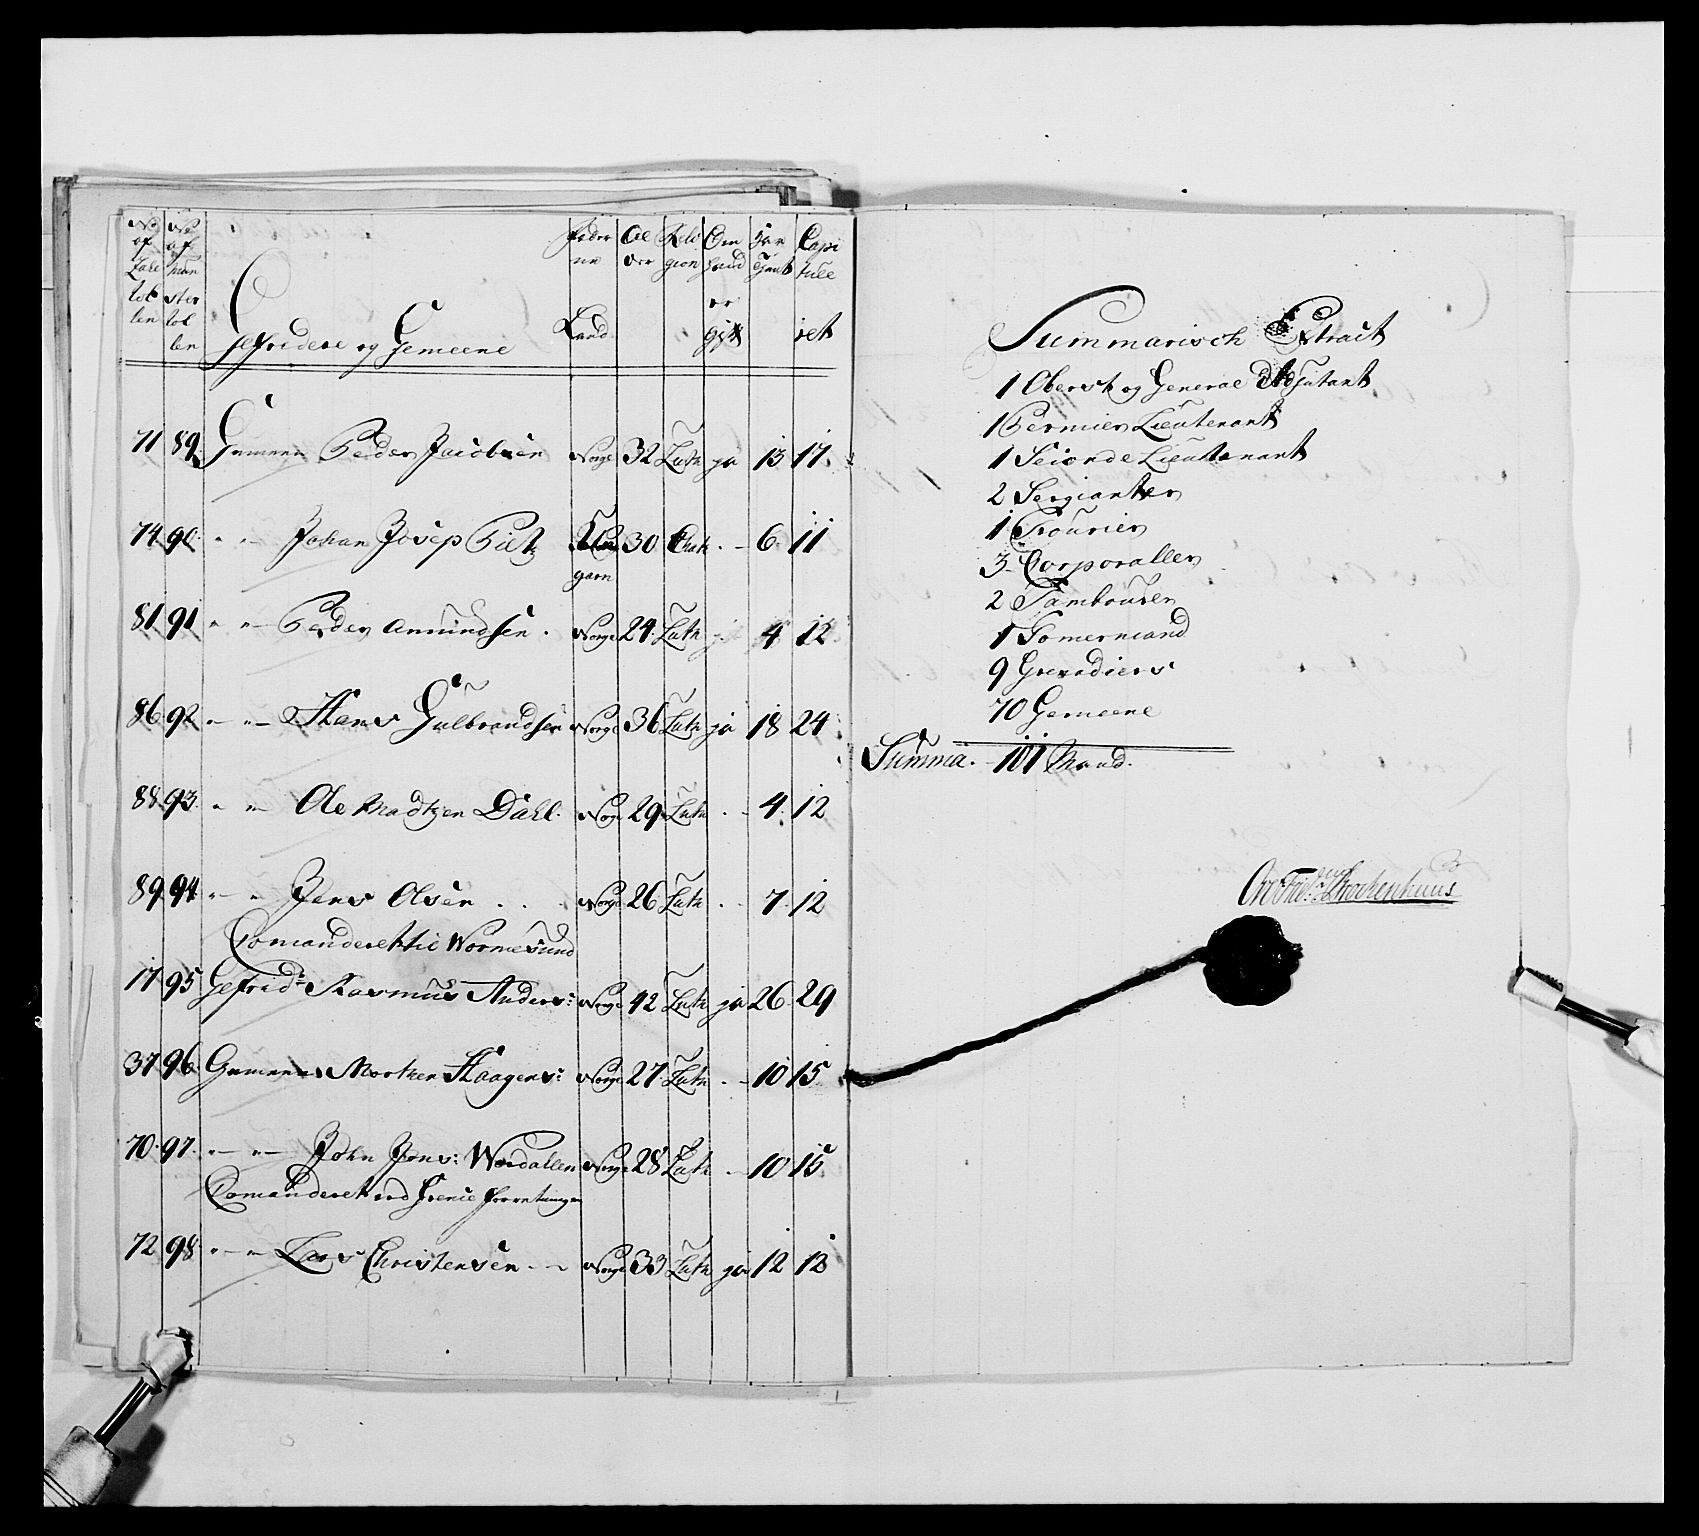 No af Zahl rol len
No af Mun ster rol len
Gefridere og Gemeene
Fæder ne Land
Al der
Reli gion
Om hand er gift
Har Tjent
Capi tule ret
71 89. Gemeen Peder Jacobsen Norge 32 Luth ja 13 17.
74. 90. " " Johan Josep Pietz garn 30 Chat. - 6. 11
81 91 " " Peder Amundsen. Norge 24. Luth 4 12
86. 92. " " Hans Gulbrandsen Norge 36 Luth ja 18 24
88. 93. " " Ole Madtzen Dahl. Norge 29 Luth . - 4. 12
89. 94. " " Jens Olsen . . Norge 26 Luth . . 7. 12
Comanderet til Wormesund
17 95 Gefrid: Rasmus Anders: Norge 42 Luth ja 26. 29
37 96 Gemeen Morten Haagens: Norge 27. Luth . - 10 15
70. 97. " " John Jons: Wordallen Norge 28 Luth - 10 15.
Comanderet ved Grence Forretningen
72. 98 " " Lars Christensen - - Norge 33 Luth ja 12 12
Summarisch Extract
1 Oberst og General Adjutant
1 Permier Lieutenant
1 Seconde Lieutenant
2 Sergianter
1 Fourier
3. Corporaller
2 Tambourer
1 Tømermand
9 Grenadiers
70 Gemeene
Summa. - 101 Mand.
Krockenhuus